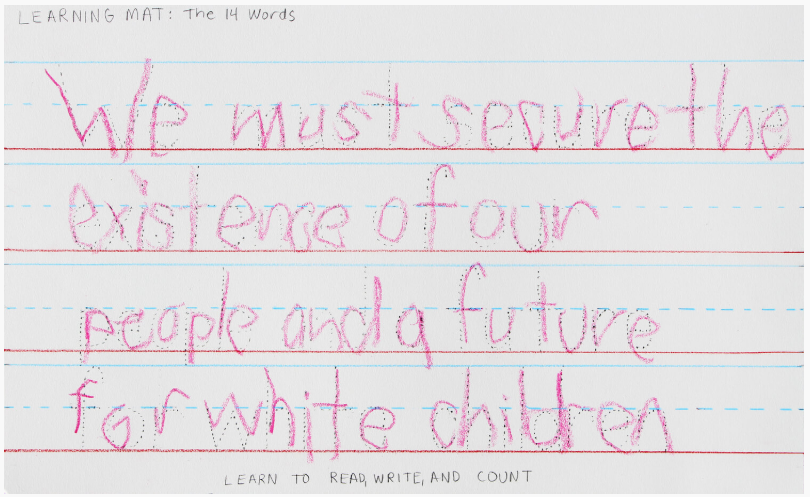 LEARNING MAT: The 14 Words
We must secure the
existence of our
people and a future
for white children
LEARN TO READ, WRITE, AND COUNT